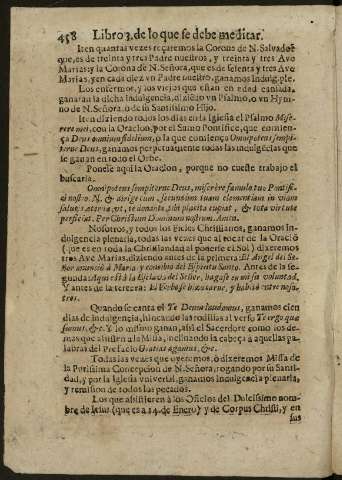 458 Libro 3. de lo que se debe meditar.
Iten quantas vezes reçaremos la Corona de N. Salvador
que, es de treinta y tres Padre nuestros, y treinta y tres Ave
Marias: y la Corona de N. Señora, que es de sesenta y tres Ave
Marias, y en cada diez vn Padre nuestro, ganamos Indulg. ple.
Los enfermos, y los viejos que estàn en edad cansada,
ganaràn la dicha Indulgencia, si dizen vn Psalmo, o vn Hym-
no de N. Señora, o de su Santissimo Hijo.
Iten diziendo todos los dias en la Iglesia el Psalmo Mise-
rere mei, con la Oracion, por el Sumo Pontifice, que comien-
ça Deus omnium fidelium, o la que comiença Omnipotens sempi-
terne Deus, ganamos perpetuamente todas las indulgēcias que
se ganan en todo el Orbe.
Ponese aqui la Oracion, porque no cueste trabajo el
buscarla.
Omnipotens sempiterne Deus, miserere famulo tuo Pontifi-
ci nostro. N. & dirige eum, secundum tuam clementiam in viam
salutis æternæ, ut, te donante, tibi placita cupiat, & tota virtute
perficiat. Per Christum Dominum nostrum. Amen.
Nosotros, y todos los Fieles Christianos, ganamos in-
dulgencia plenaria, todas las vezes que al tocar de la Oraciō
(que es en toda la Christiandad al ponerse el Sol) dixeremos
tres Ave Marias, diziendo antes de la primera El Angel del Se-
ñor anunciò à Maria, y concibio del Espiritu Santo. Antes de la se-
gunda Aqui està la Esclava del Señor, hagase en mi su voluntad,
Y antes de la tercera: El Verbo se hizo carne, y habitò entre noso-
tros.
Quando se canta el Te Deum laudamus, ganamos cien
dias de indulgencia, hincando las rodillas al verso Te ergo quæ
sumus, &c. Y lo mismo ganan, assi el Sacerdote como los de-
mas que assisten a la Missa, inclinando la cabeça a aquellas pa-
labras del Prefacio Gratias agamus, &c.
Todas las vezes que oyeremos, ò dixeremos Missa de
la Purissima Concepcion de N. Señora, rogando por su Santi-
dad, y por la Iglesia vniversal, ganamos indulgencia plenaria,
y remission de todos los pecados.
Los que assistieren à los Oficios del Dulcissimo nom-
bre de Iesus (que es a 14. de Enero) y de Corpus Christi, y en
sus